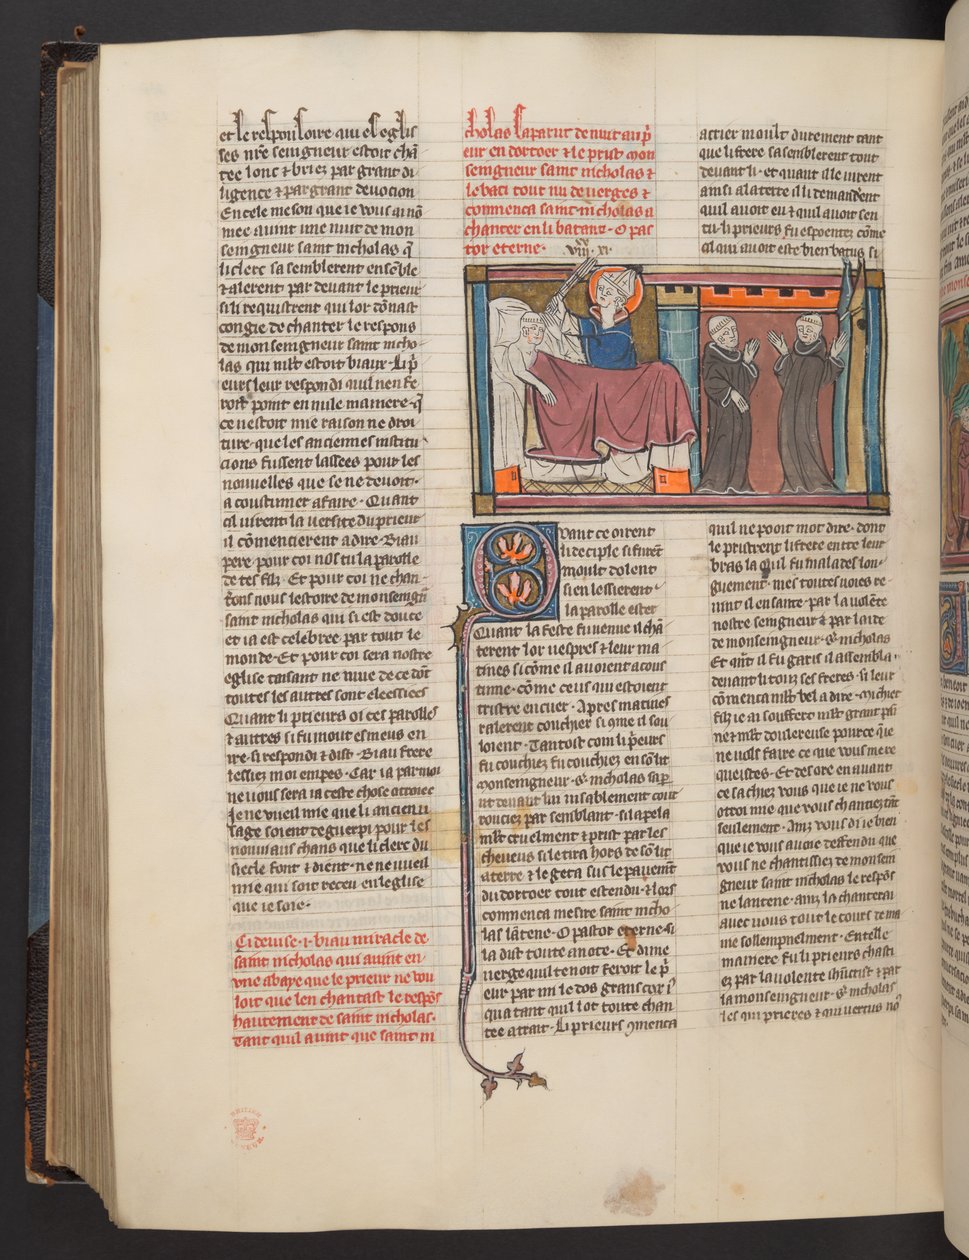 et le respousoire qui es eglis
ses nr̃e seingneur estoit chã
tee lonc ⁊ briez par grant di
ligence ⁊ par grant deuocion
En cele meson que ie vous ai nõ
mee auint une nuit de mon
seingneur saint nicholas q̃
li clerc sasemblerent ensẽble
⁊ alerent par deuant le prieur
si li requistrent qui lor dõnast
congie de chanter le respons
de monseingneur saint nicho
las qui mlt estoit biaux · Li p̃
eurs leur respondi quil nen fe
roit point en nule maniere · q̃
ce nestoit mie raison ne droi
ture · que les anciennes institu
cions fussent lassees pour les
nouuelles que se ne deuoit ·
a coustumer a faire · Quant
cil uirent la uersite du prieur
il cõmencierent a dire · Biau
pere pour coi nos tu la parolle
de tes filz · Et pour coi ne chan
tons nous lestoire de monseingñ
saint nicholas qui si est douce
et ia est celebree par tout le
monde · Et pour coi sera nostre
eglise taisant ne nue de ce dõt
toutes les autres sont eleessiees
Quant li prieurs oi ces parolles
⁊ autres si fu mout esmeus en
ire · si respondi ⁊ dist · Biau frere
lessiez moi empes · Car ia par moi
ne vous sera ia ceste chose otroiee
Je ne vueil mie que li ancien u
sage soient deguerpi pour les
nouuiaus chans que li clerc du
siecle font ⁊ dient · ne ne vueil
mie qui soit receu en leglise
que ie soie ·
Ci deuise · i · biau miracle de
saint nicholas qui auint en ·
vne abaye que le prieur ne vou
loit que len chantast le respõs
hautement de saint nicholas ·
Tant quil auint que saint ni
cholas saparut de nuit au p̃
eur en dortoer ⁊ le prist mon
seingneur saint nicholas ⁊
le bati tout nu de uerges ⁊
commenca saint nicholas a
chanter en li batant · O pas
tor eterne ·
Quant ce oirent
li deciple si furẽt
moult dolent
si en lessierent ·
la parolle ester
Quant la feste fu uenue il chã
terent lor uespres ⁊ leur ma
tines si cõme il auoient acous
tume · cõme ceus qui estoient
tristre en cuer · Apres matines
ralerent couchier si ꝯme il sou
loient · Tantost com li p̃eurs
fu couchiez en sõ lit
monseingneur · s̃ · nicholas sap
ut deuant lui uisablement cour
rouciez par semblant · si lapela
mlt cruelment ⁊ prist par les
cheueus si le tira hors de sõ lit
a terre ⁊ le geta sus le pauemẽt
du dortoer tout estendu · ⁊ lors
commenca mestre saint nicho
las lãtene · O pastor eterne · si
la dist toute a note · Et dune
uerge quil tenoit feroit le p̃
eur par mi le dos
qua tant quil lot toute chan
tee a trait · Li prieurs ꝯmenca
a crier moult durement tant
que li frere sasemblerent tout
deuant li · et quant il le uirent
ainsi a la terre il li demandẽt
quil auoit eu ⁊ quil auoit sen
tu · li prieurs fu espoentez cõme
cil qui auoit este bien batus si
quil ne pooit mot dire · dont
le pristrent li frere entre leur
bras la quil fu malades lon
guement · mes toutes uoies re
uint il en sante · par la uolẽte
nostre seingneur ⁊ par laide
de monseingneur · s̃ · nicholas
Et qñt il fu garis il assembla ·
deuant li touz ses freres · si leur
cõmenca mlt bel a dire ·
filz ie ai souffert mlt grant
ne ⁊ mlt doulereuse pource que
ne uoil faire ce que vous me re
queistes · Et des ore en auant
ce sachiez vous que ie ne vous
otroi mie que vous chantez tãt
seulement · Ainz vous di ie bien
que ie vous auoie deffendu que
vous ne chantissiez de monsein
gneur saint nicholas le respõs
ne lantene · ainz la chanterai
auec uous tout le cours de ma
me sollempnelment · En telle
maniere fu li prieurs chasti
ez par la uolente ihũcrist ⁊ par
la monseingneur · s̃ · nicholas
les qui prieres ⁊ qui uertus noꝰ
BRITISH
MUSEUM